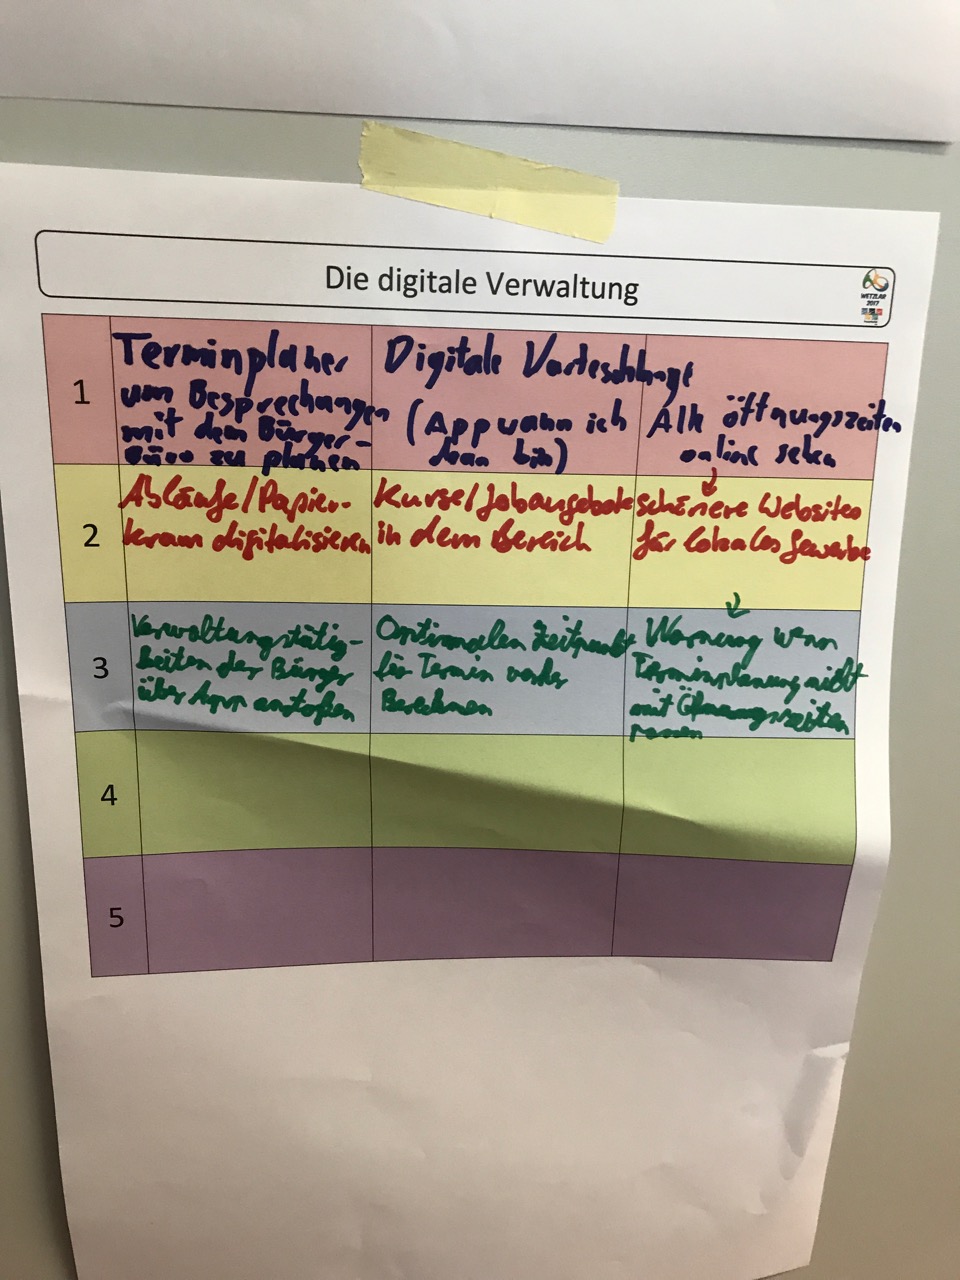 Die digitale Verwaltung
WETZLAR
2017
1
Terminplaner
um Besprechungen
mit dem Bürger-
büro zu planen
Digitale Warteschlange
(App wann ich
dran bin)
Alle öffnungszeiten
online sehen
2
Abläufe/Papier-
kram digitalisieren
Kurse/Jobangebote
in dem Bereich
schönere Websites
für lokales Gewerbe
3
Verwaltungstätig-
keiten der Bürger
über App anstoßen
Optimalen Zeitpunkt
für Termin vorher
Berechnen
Warnung wenn
Terminplanung nicht
mit Öffnungszeiten
passen
4
5